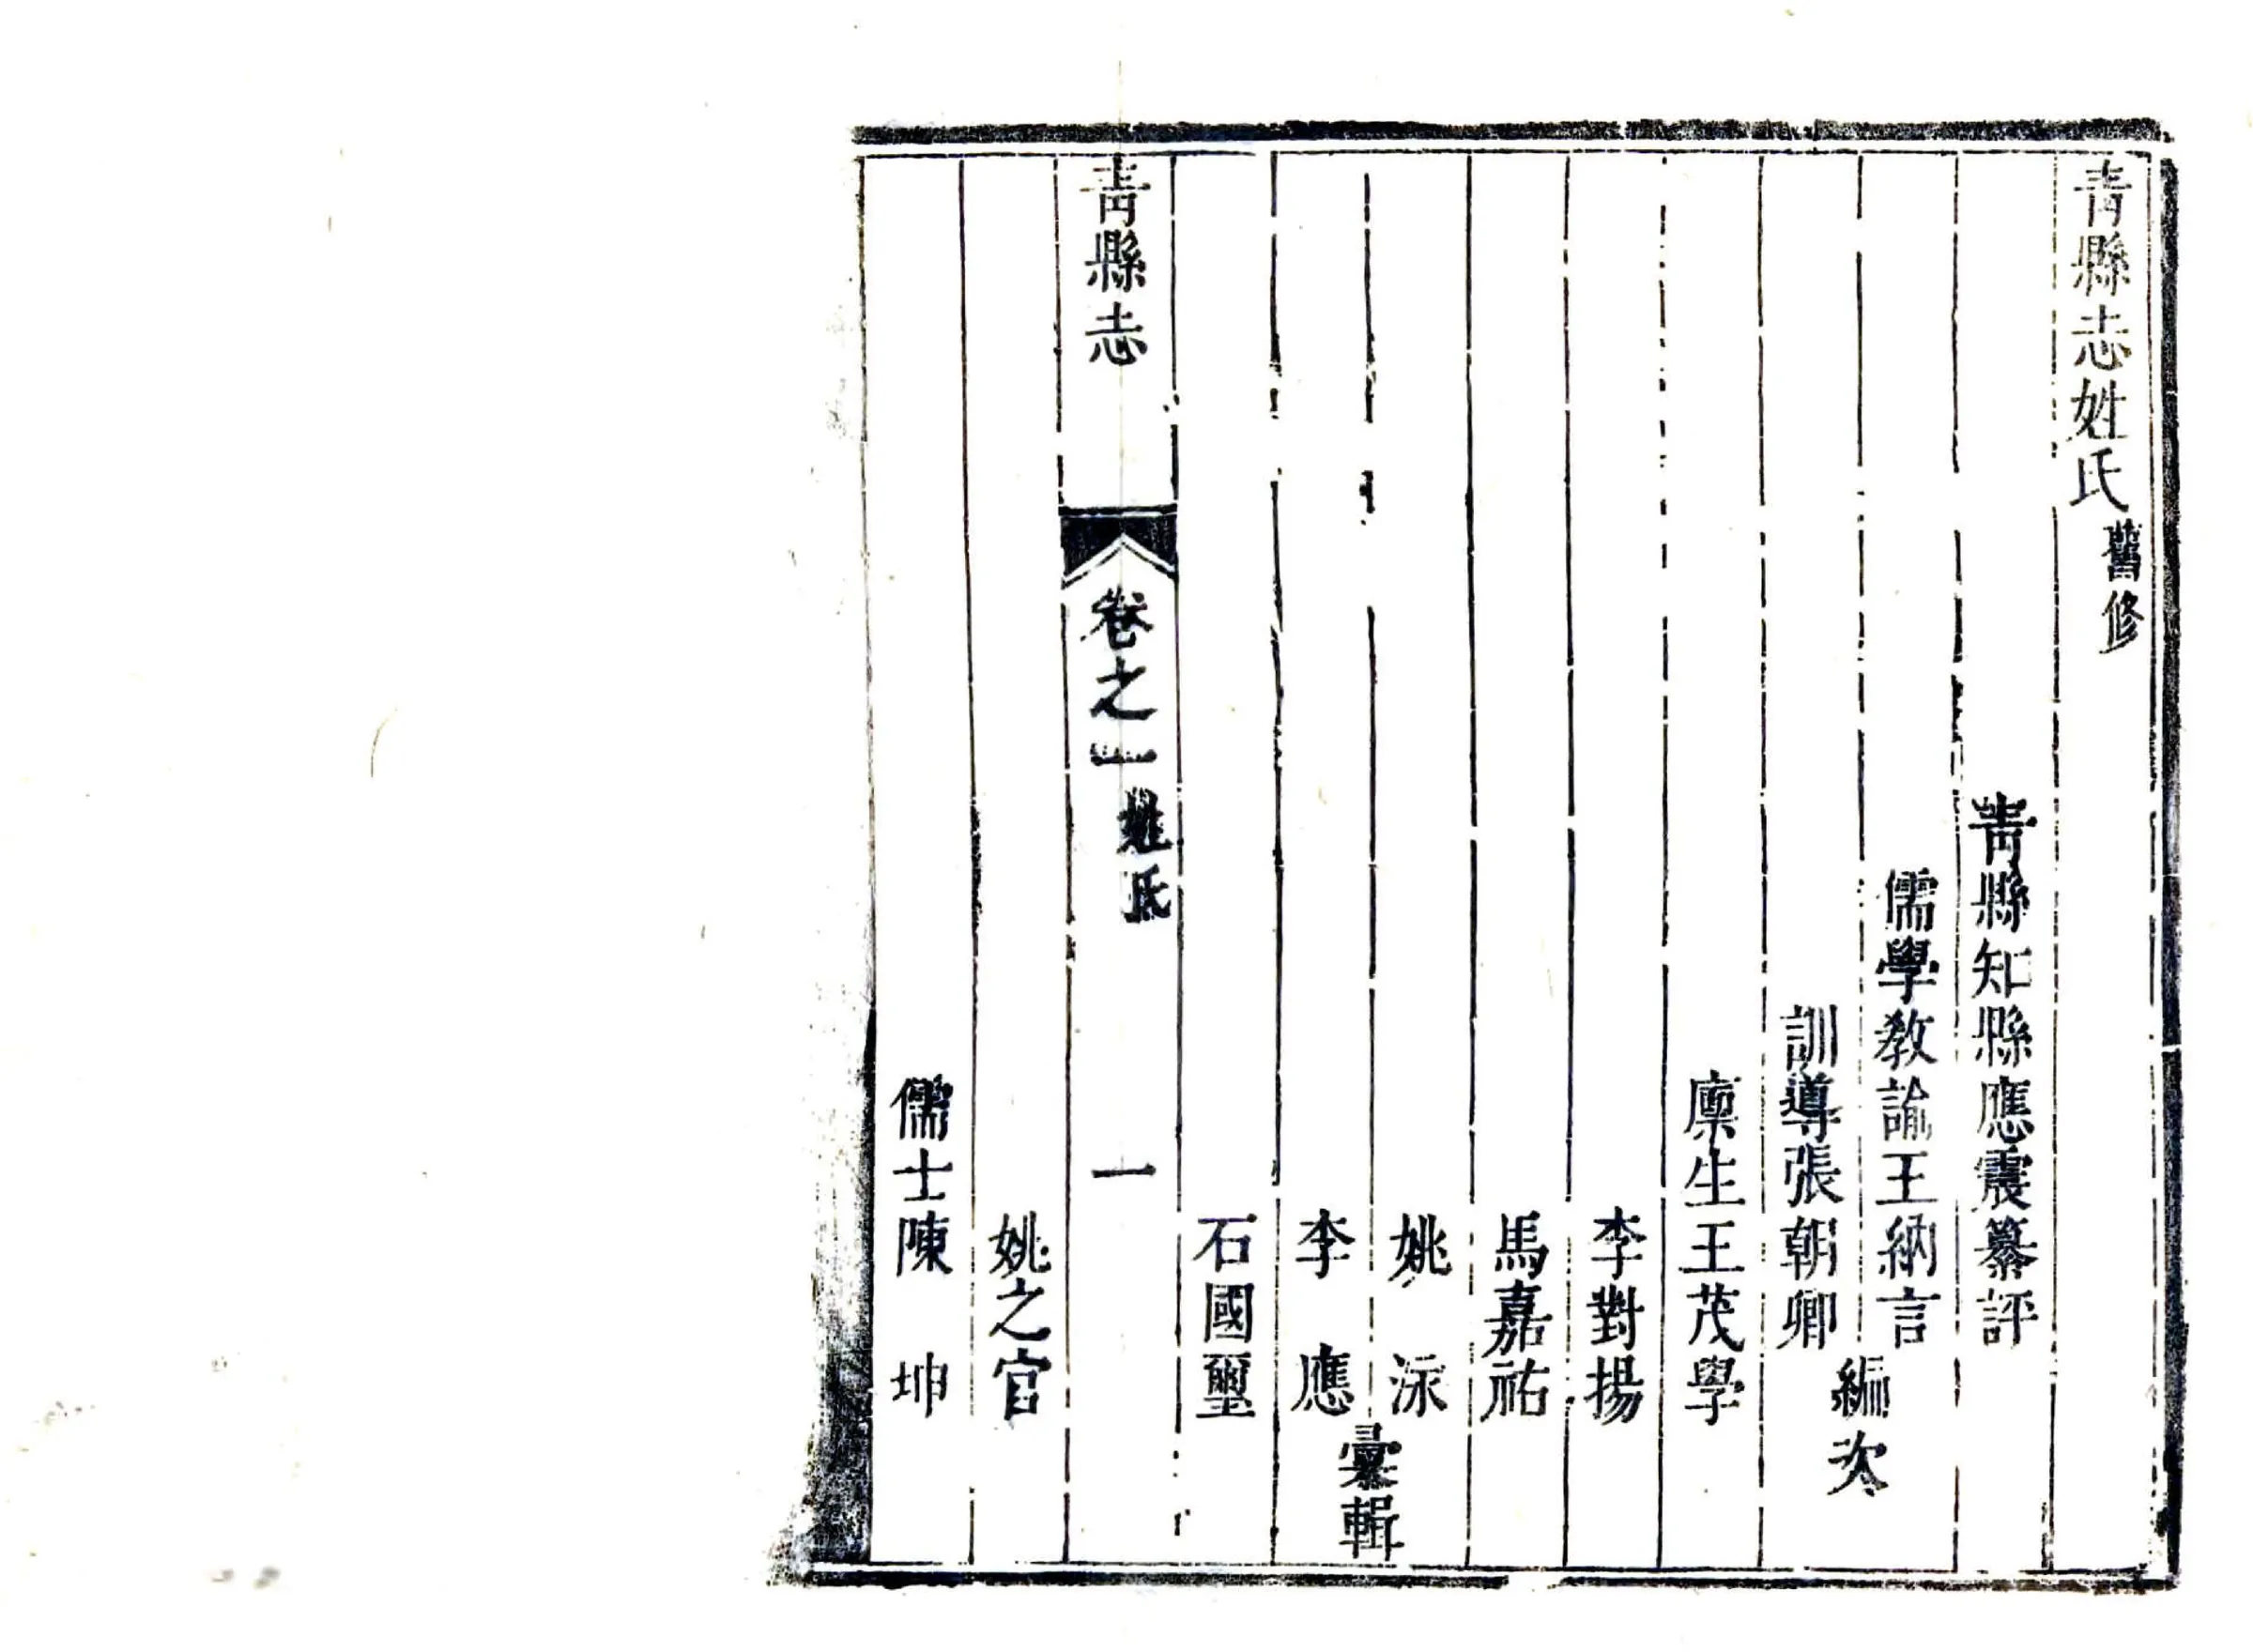 青縣志姓氏 舊修
青縣知縣應震纂評
儒學教諭王納言
訓導張朝卿
編次
廩生王茂學
李對揚
馬嘉祐
姚 泳
李 應
彙輯
石國璽
青縣志 卷之一 姓氏 一
姚之官
儒士陳 坤